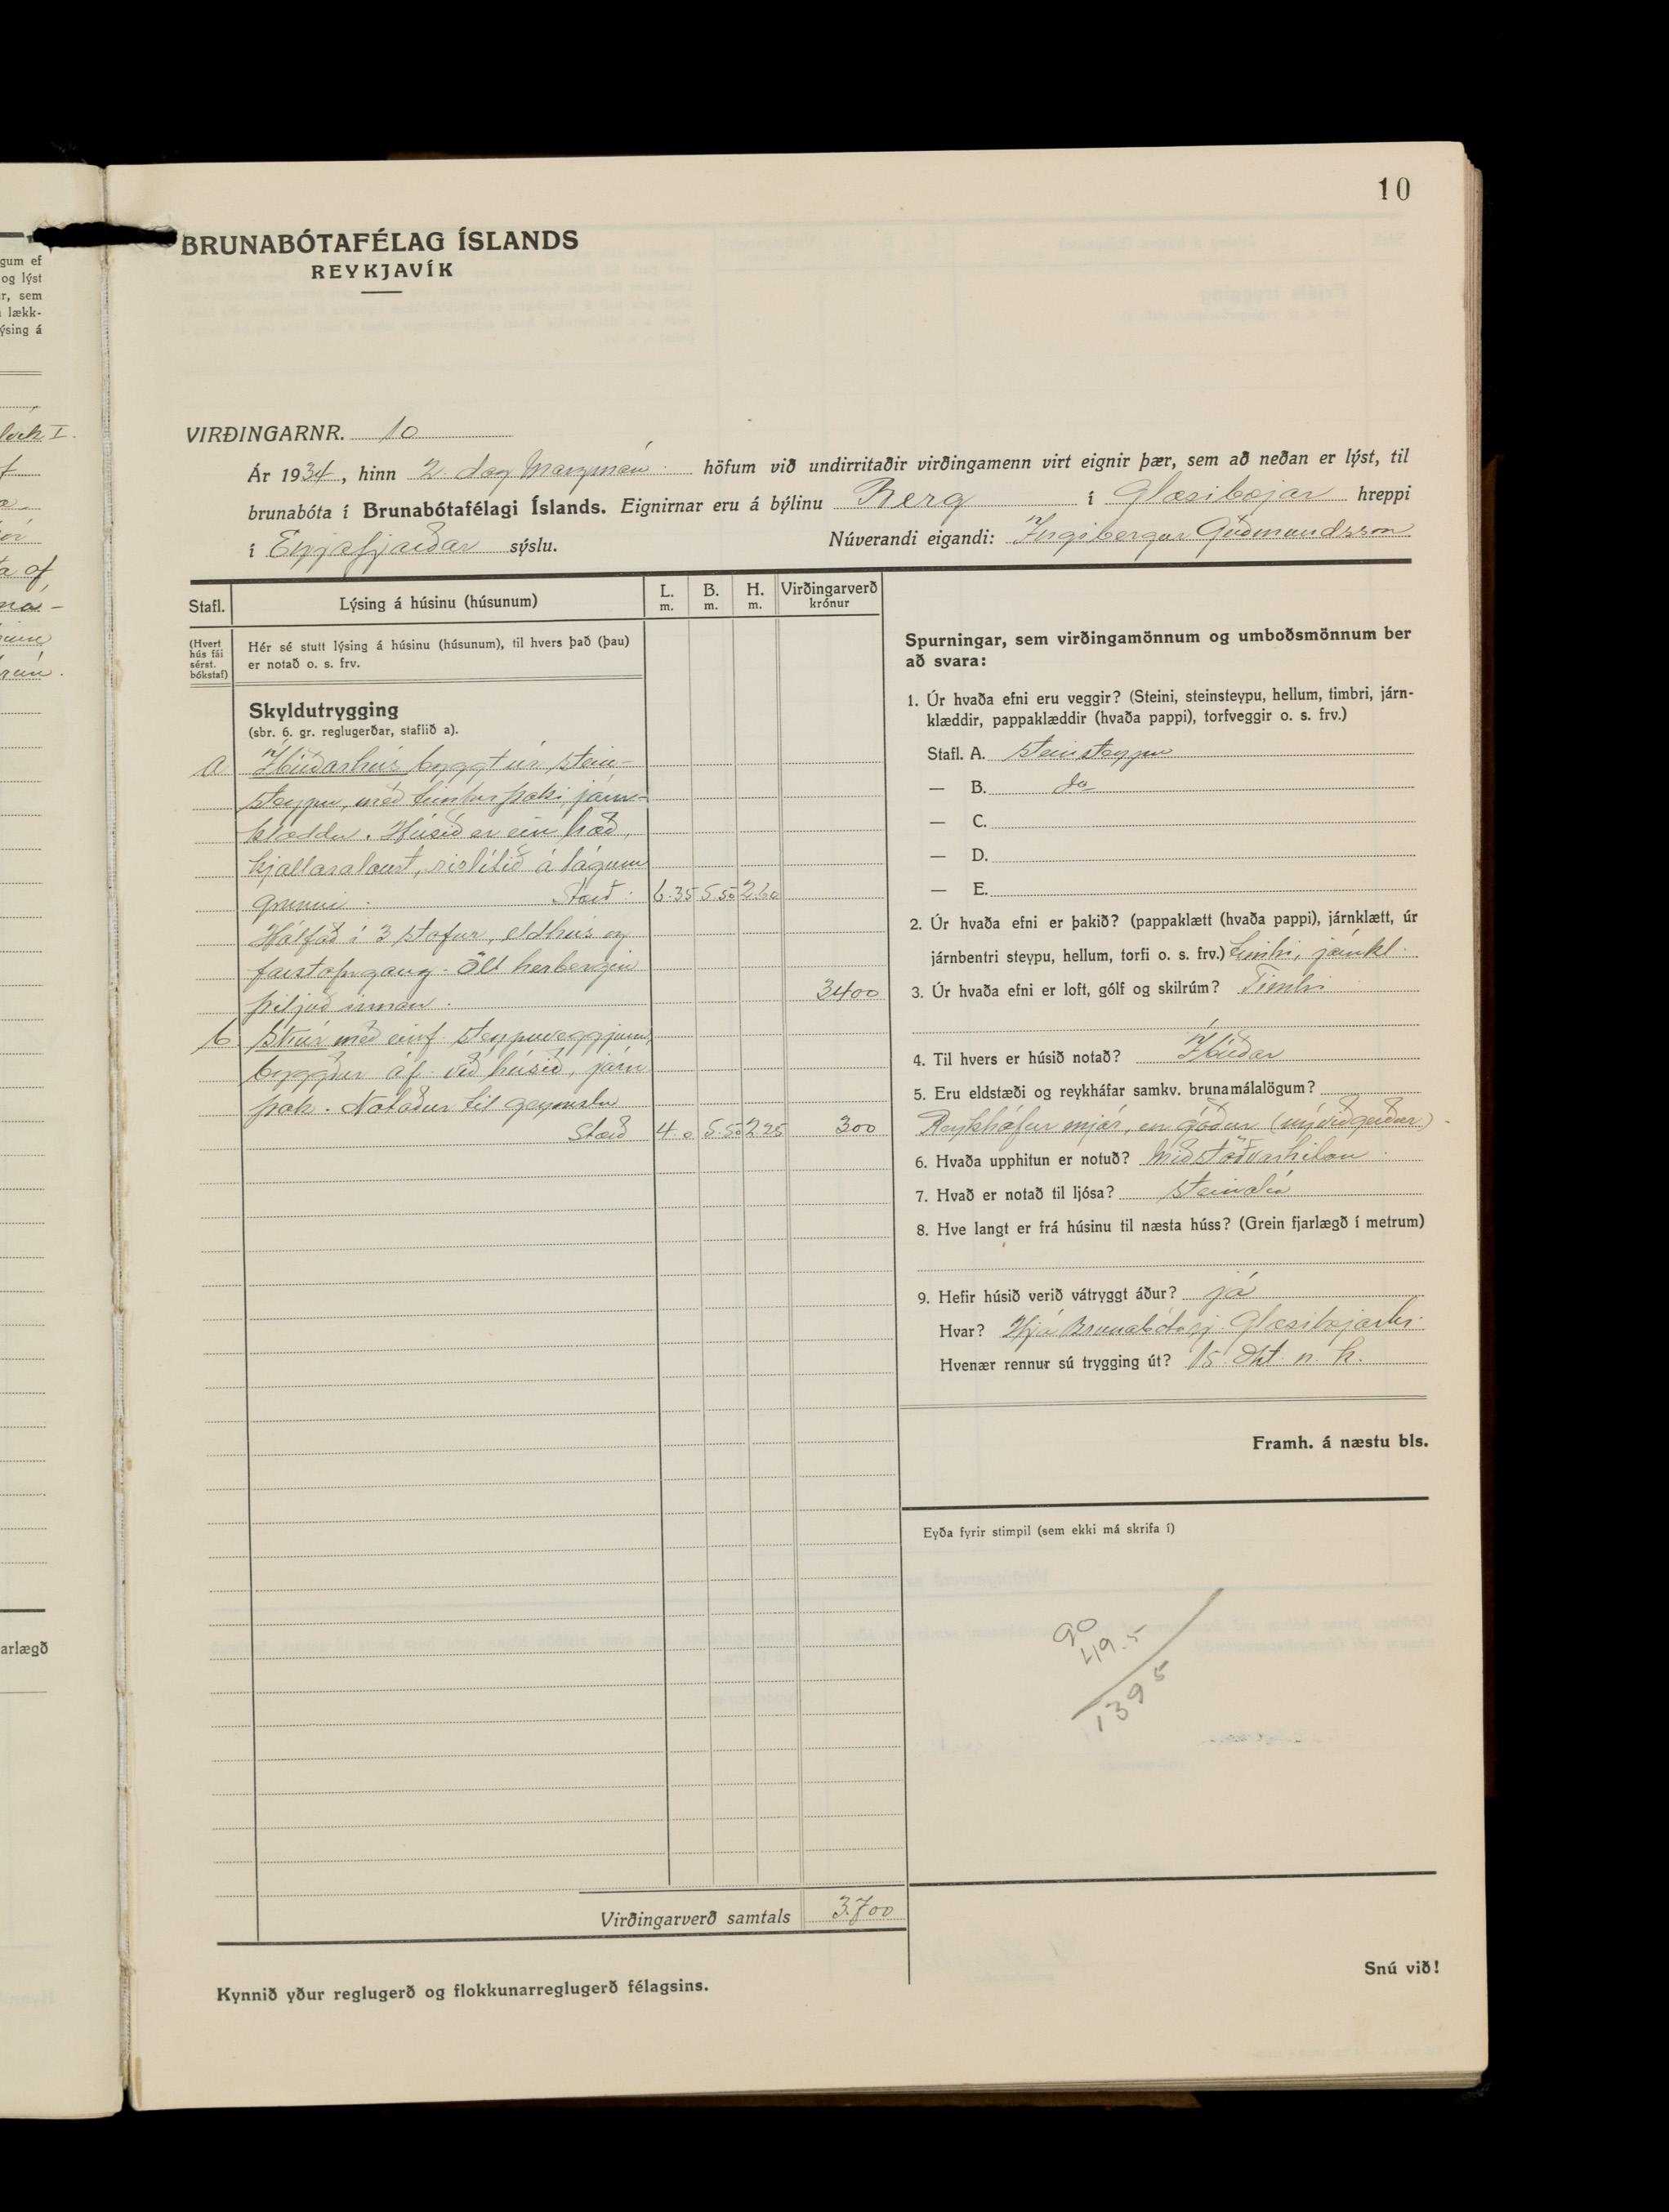 10
BRUNABÓTAFÉLAG ÍSLANDS
REYKJAVÍK
VIRÐINGARNR. 10
Ár 1934, hinn 2. dag Marzmán. höfum við undirritaðir virðingamenn virt eignir þær, sem að neðan er lýst, til
brunabóta í Brunabótafélagi Íslands. Eignirnar eru á býlinu Berg í Glæsibæjar hreppi
í Eyjafjarðar sýslu. Núverandi eigandi: Ingibergur Guðmundsson
Stafl. Lýsing á húsinu (húsunum) L. m. B. m. H. m. Virðingarverð krónur
(Hvert hús fái sérst. bókstaf)
Hér sé stutt lýsing á húsinu (húsunum), til hvers það (þau)
er notað o. s. frv.
Skyldutrygging
(sbr. 6. gr. reglugerðar, staflið a).
a Íbúðarhús byggt úr stein-
steypu, með timburþaki járn-
klæddu. Húsið er ein hæð,
kjallaralaust, rislítið á lágum
grunni. Stærð: 6.35 5.50 2.60
Hólfað í 3 stofur, eldhús og
forstofugang. Öll herbergin
þiljuð innan. 3400
b. Skúr með einf. steypuveggjum,
byggður áf. við húsið, járn
þak. Notaður til geymslu
Stærð 4.0 5.50 2.25 300
Virðingarverð samtals 3.700
Kynnið yður reglugerð og flokkunarreglugerð félagsins.
Spurningar, sem virðingamönnum og umboðsmönnum ber
að svara:
1. Úr hvaða efni eru veggir? (Steini, steinsteypu, hellum, timbri, járn-
klæddir, pappaklæddir (hvaða pappi), torfveggir o. s. frv.)
Stafl. A. steinsteypu
— B. do
— C.
— D.
— E.
2. Úr hvaða efni er þakið? (pappaklætt (hvaða pappi), járnklætt, úr
járnbentri steypu, hellum, torfi o. s. frv.) timbri, járnkl.
3. Úr hvaða efni er loft, gólf og skilrúm? Timbri
4. Til hvers er húsið notað? Íbúðar
5. Eru eldstæði og reykháfar samkv. brunamálalögum?
Reykháfur mjór, en góður (nýviðgerður).
6. Hvaða upphitun er notuð? Miðstöðvarhitun.
7. Hvað er notað til ljósa? steinolía
8. Hve langt er frá húsinu til næsta húss? (Grein fjarlægð í metrum)
9. Hefir húsið verið vátryggt áður? já
Hvar? Hjá Brunabótasj. Glæsibæjarhr.
Hvenær rennur sú trygging út? 15. Okt. n. k.
Framh. á næstu bls.
Eyða fyrir stimpil (sem ekki má skrifa í)
90
49.5
1395
Snú við!
gum ef
og lýst
r, sem
lækk-
ýsing á
arlægð